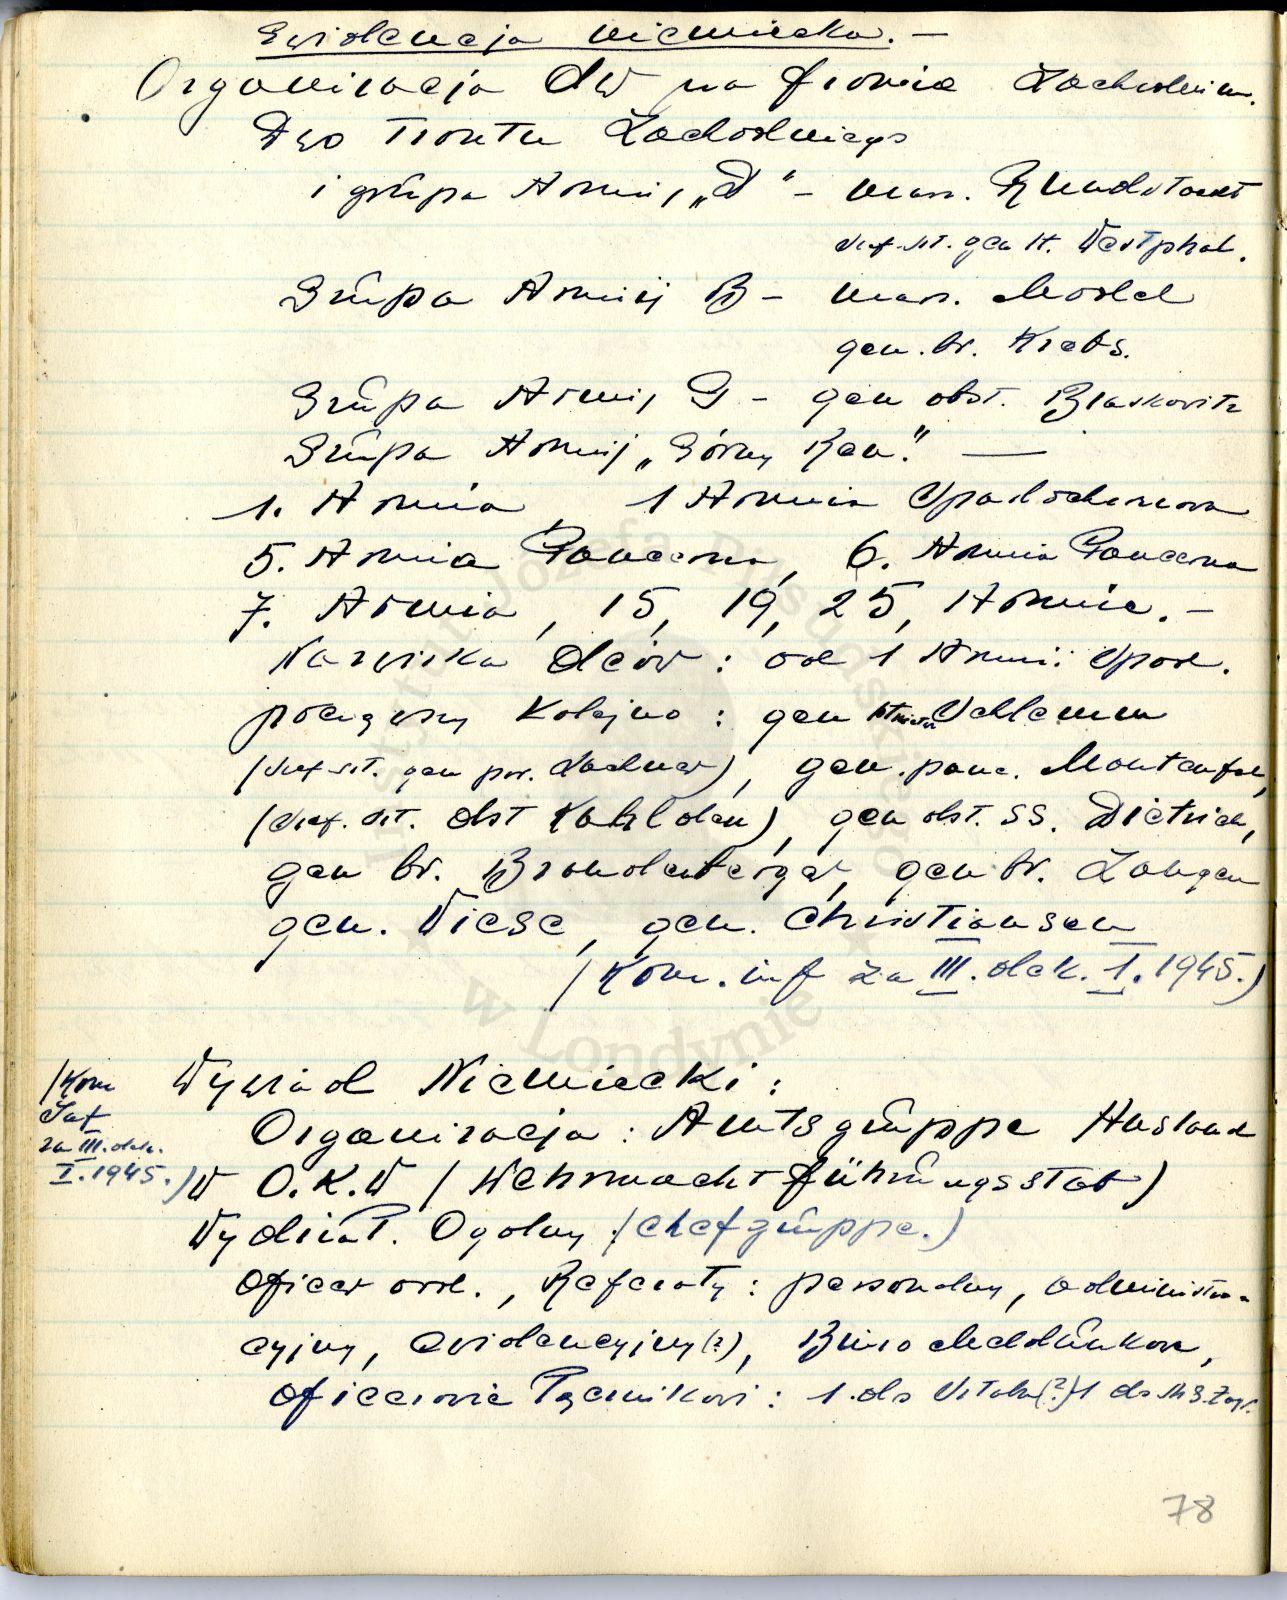 Ewidencja niemiecka. —
Organizacja dtw na froncie Zachodnim.
D-wo Frontu Zachodniego
i grupa Armii „D" – marsz. Rundstaedt
szef szt. gen lt. Westphal.
Grupa Armij B – marsz. Model
gen. br. Krebs.
Grupa Armij G – gen obst. Blaskovitz
Grupa Armij „Górny Ren". —
1. Armia, 1 Armia Spadochronowa
5. Armia Pancerna, 6. Armia Pancerna
7. Armia, 15, 19, 25, Armie. –
Nazwiska dców: od 1 Armii Spad.
począwszy kolejno: gen lotnictwa Schlemm
(szef szt. gen por.), gen. panc. Manteufel,
(szef. szt. obst Kahlden), gen obst. SS. Dietrich,
gen br. Brandenberger, gen br. Zangen
gen. Wiese, gen. Christiansen
(Kom. inf za III. dek. I. 1945.)
Wywiad Niemiecki:
/Kom
Inf
za III. dek.
I. 1945.)
Organizacja: Amtsgruppe Ausland
W O.K.W (Wehrmachtführungsstab)
Wydział. Ogólny (Chefgruppe.)
Oficer ord., Referaty: personalny, administra-
cyjny, ewidencyjny (?), Biuro Meldunkow,
Oficerowie Łącznikowi: 1. do Sztabu (?) 1 do M.S.Zagr.
78
Instytut Józefa Piłsudskiego w Londynie